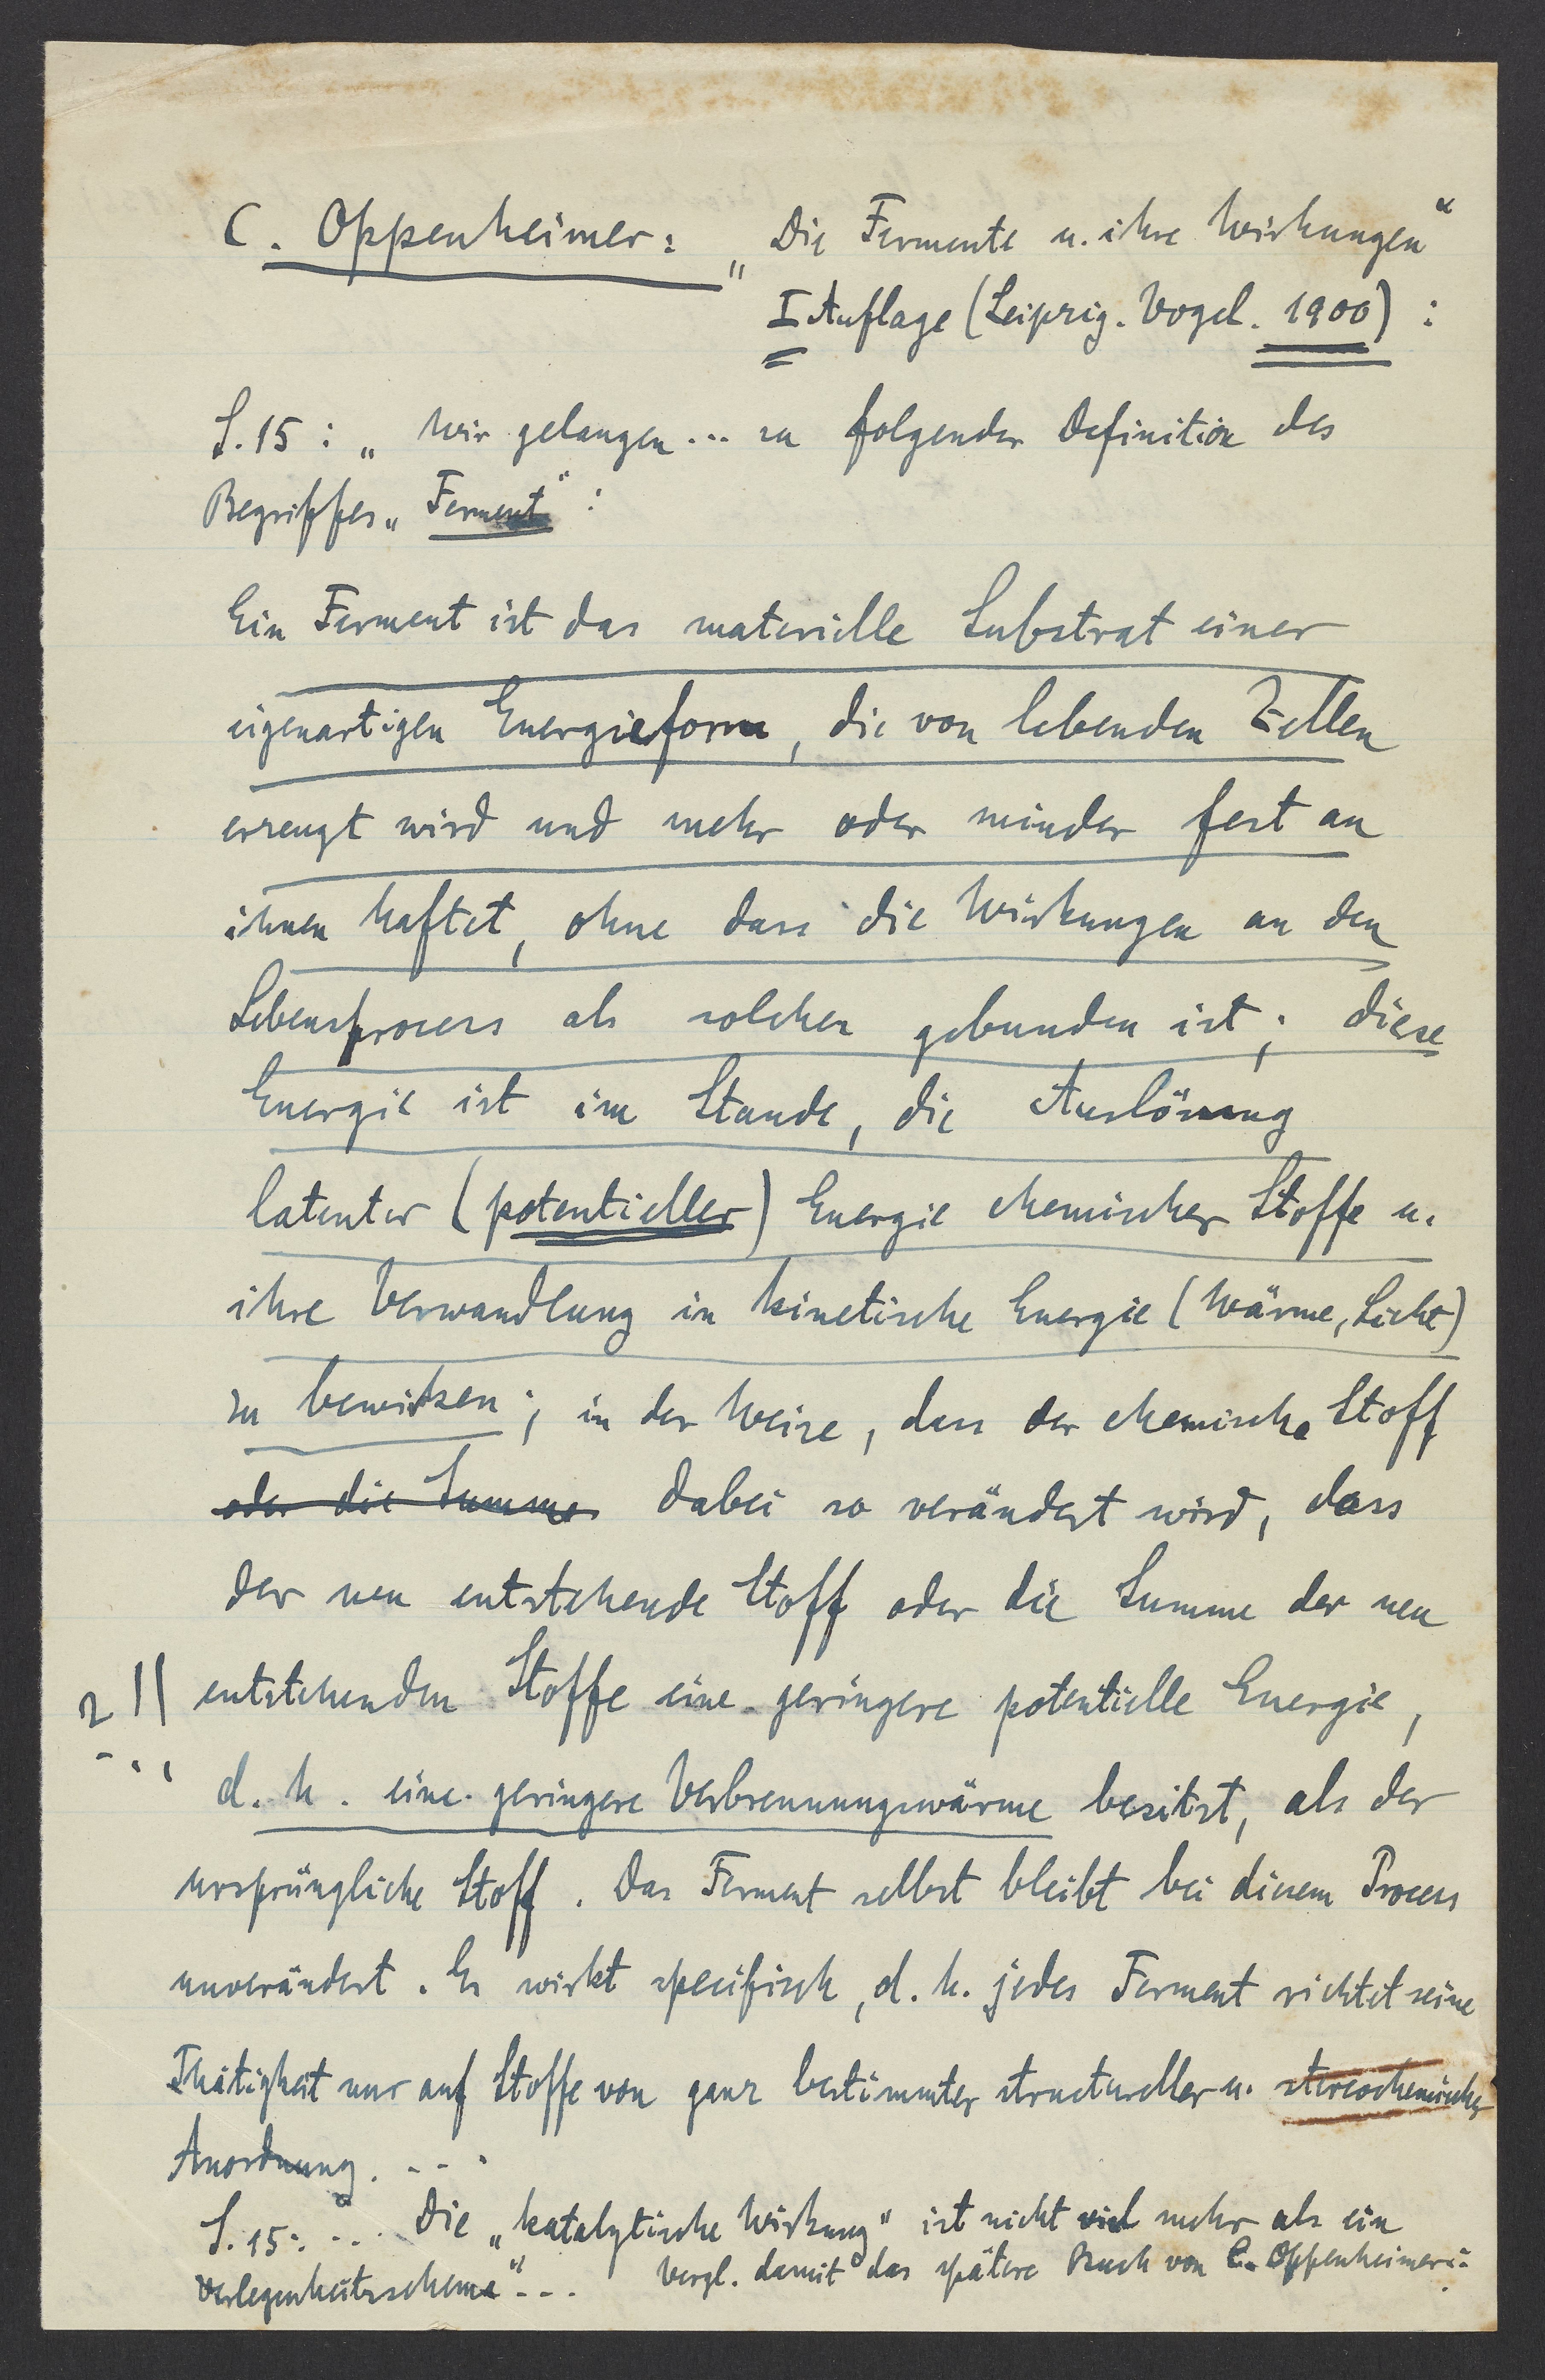 C. Oppenheimer: „Die Fermente u. ihre Wirkungen“
I Auflage (Leipzig. Vogel. 1900) :
S. 15 : „Wir gelangen ... zu folgender Definition des
Begriffes „Ferment“ :
Ein Ferment ist das materielle Substrat einer
eigenartigen Energieform, die von lebenden Zellen
erzeugt wird und mehr oder minder fest an
ihnen haftet, ohne dass die Wirkungen an den
Lebensprocess als solchen gebunden ist; diese
Energie ist im Stande, die Auslösung
latenter (potentieller) Energie chemischer Stoffe u.
ihre Verwandlung in kinetische Energie (Wärme, Licht)
zu bewirken; in der Weise, dass der chemische Stoff
oder die Summe dabei so verändert wird, dass
der neu entstehende Stoff oder die Summe der neu
!! entstehenden Stoffe eine geringere potentielle Energie,
d. h. eine geringere Verbrennungswärme besitzt, als der
ursprüngliche Stoff. Das Ferment selbst bleibt bei diesem Process
unverändert. Es wirkt specifisch, d. h. jedes Ferment richtet seine
Thätigkeit nur auf Stoffe von ganz bestimmter structureller u. stereochemischer
Anordnung. ...
S. 15: ... Die „katalytische Wirkung“ ist nicht viel mehr als ein
Verlegenheitsschema“ ... Vergl. damit das spätere Buch von C. Oppenheimer: